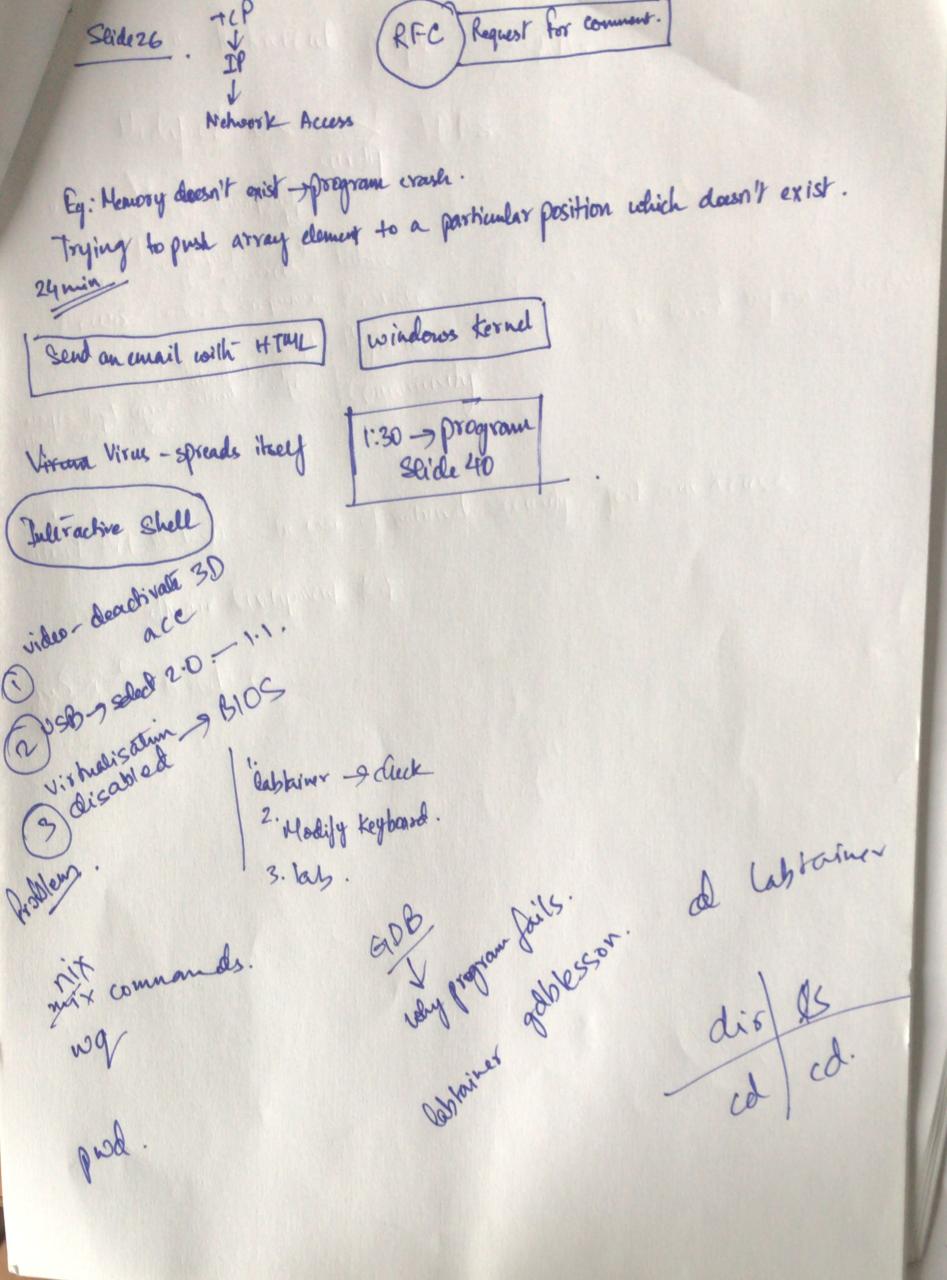 Slide 26 .
TCP
↓
IP
↓
Network Access
RFC Request for comment.
Eg: Memory doesn't exist → program crash.
Trying to push array element to a particular position which doesn't exist.
24 min
Send an email with HTML
Windows Kernel
Virus - spreads itself
1:30 → program
Slide 40
Interactive Shell
① video - deactivate 3D
acc
② USB → select 2.0 - 1.1.
③ virtualisation
disabled → BIOS
Problems.
1. labtainer → check
2. Modify keyboard.
3. lab.
nix
commands.
wq
pwd.
GDB
↓
why program fails.
labtainer gdblesson.
cd labtainer
dir | ls
cd | cd.